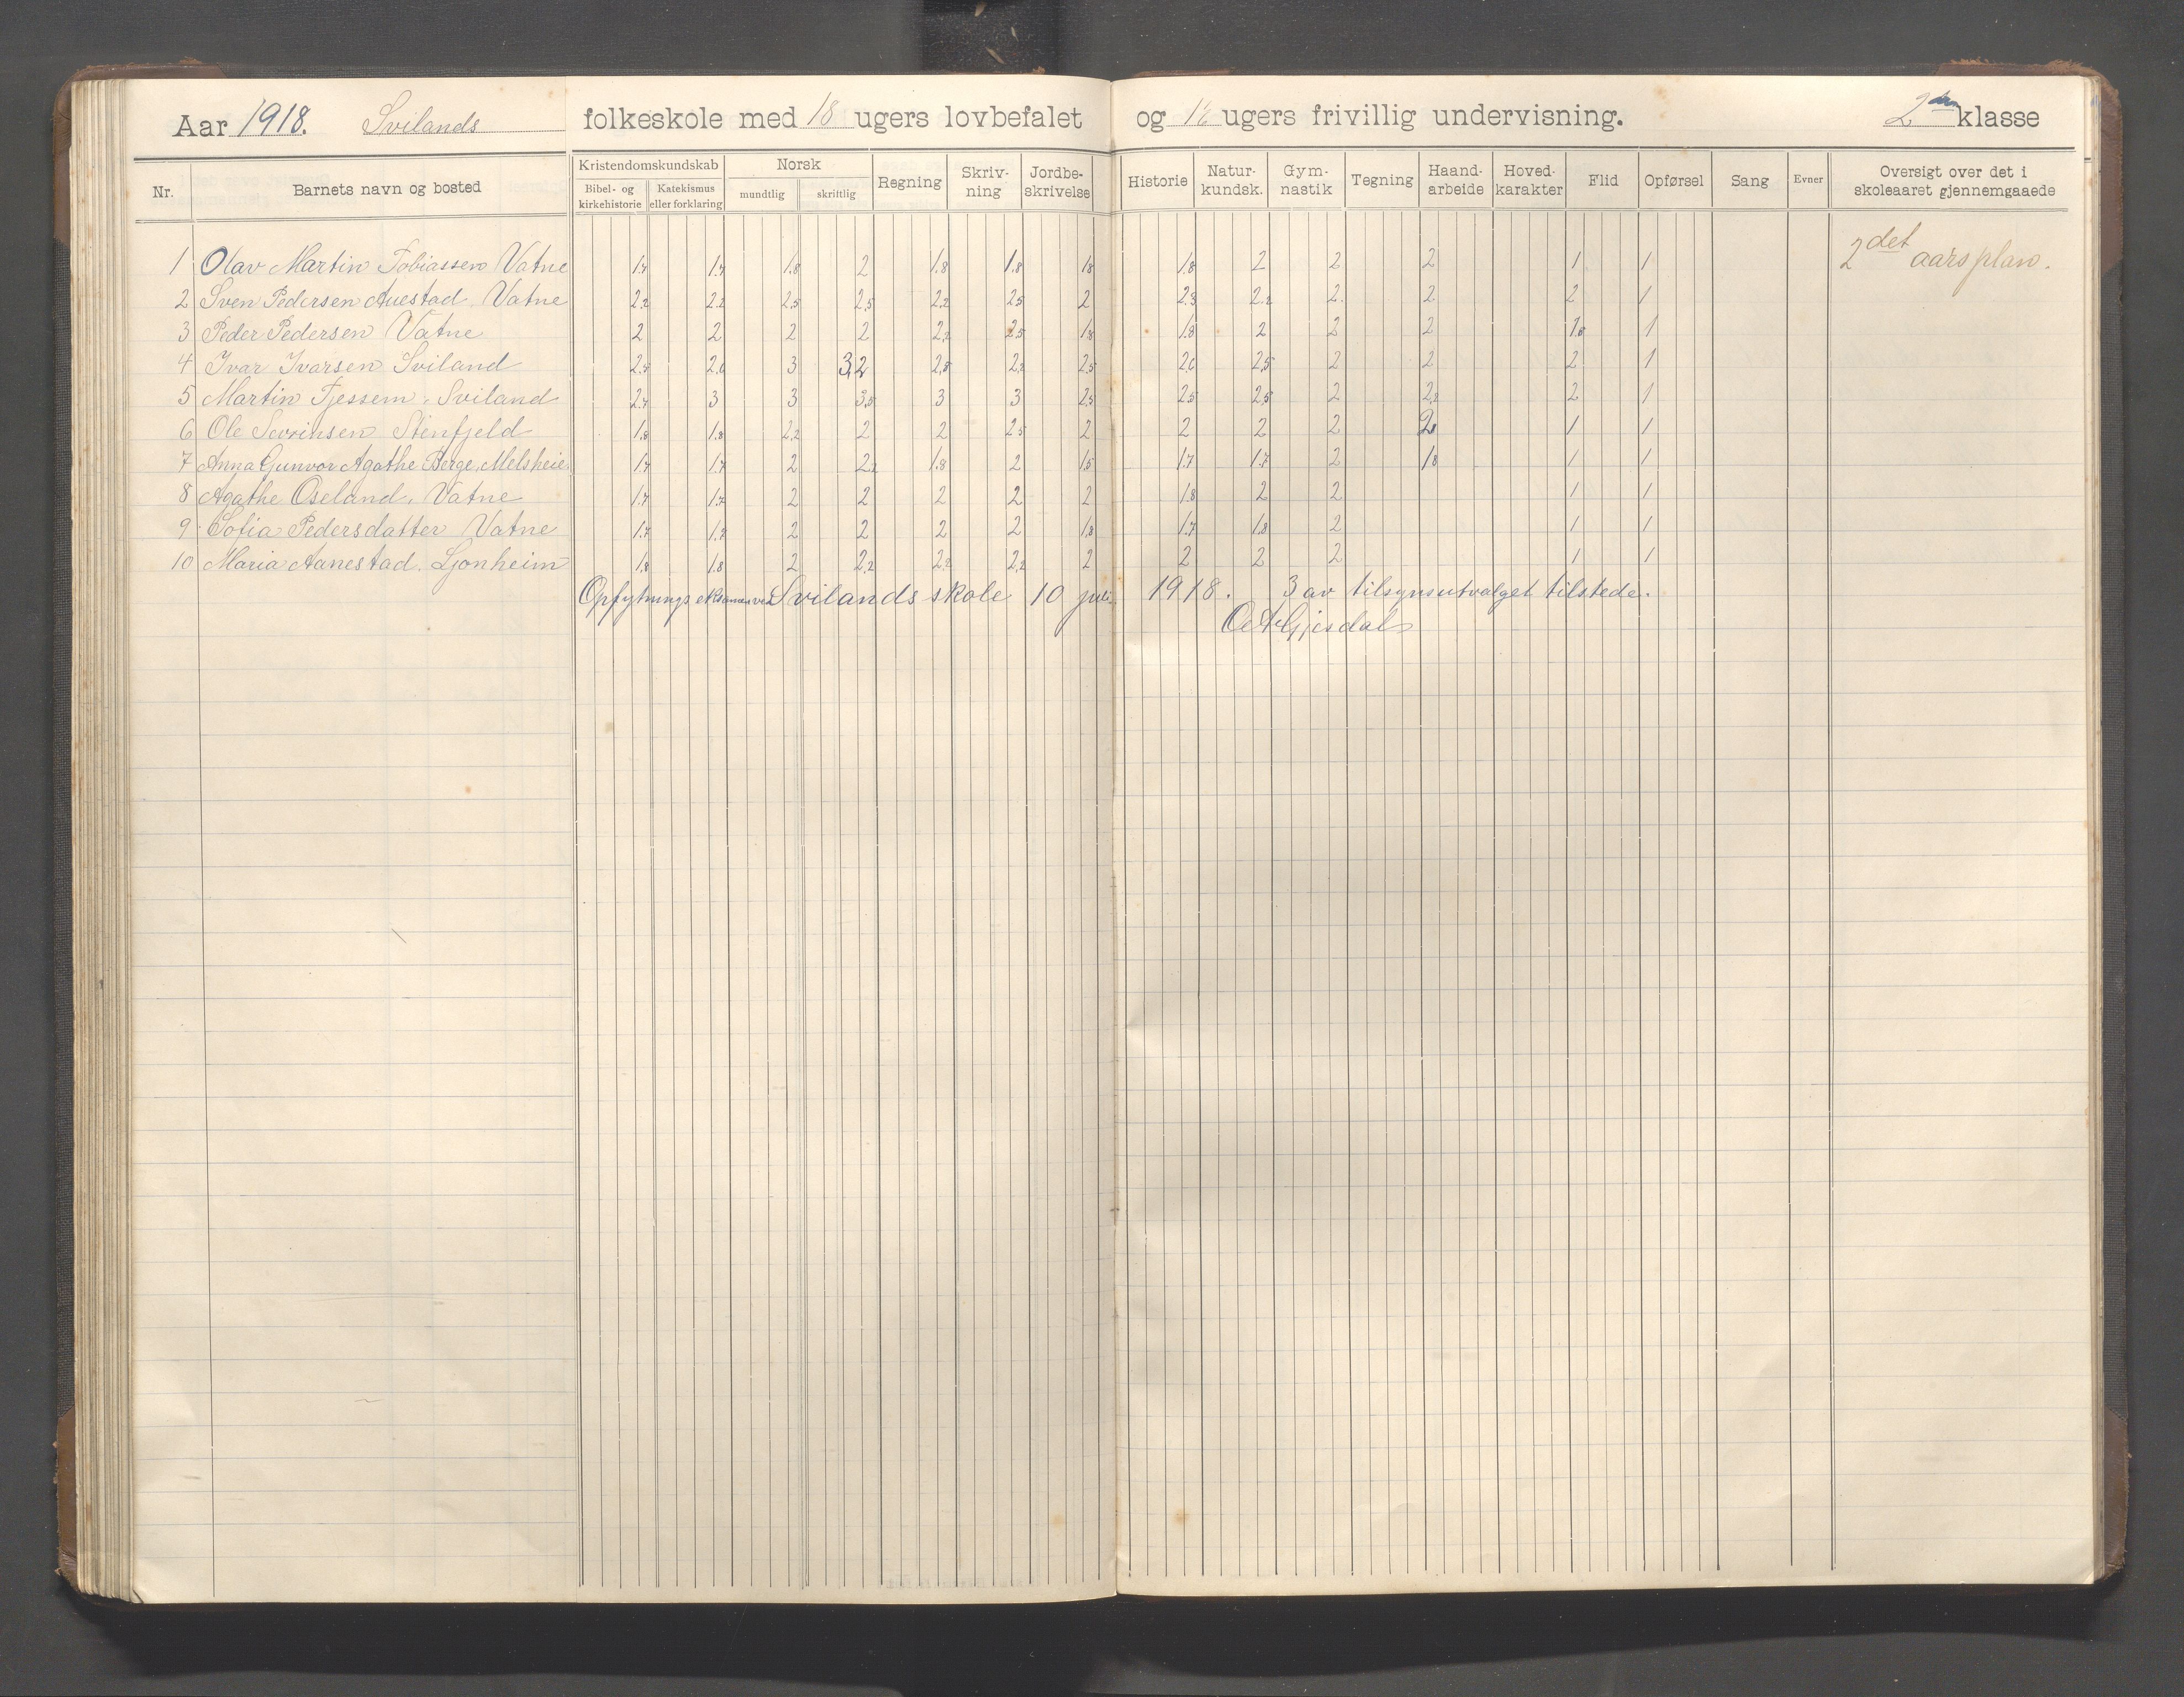 Aar 1918. Svilands folkeskole med 18 ugers lovbefalet og ugers frivillig undervisning. 2den klasse
Nr. Barnets navn og bosted Kristendomskundskab Bibel- og kirkehistorie Katekismus eller forklaring Norsk mundtlig skriftlig Regning Skriv-ning Jordbe-skrivelse Historie Natur-kundsk. Gym-nastik Tegning Haand-arbeide Hoved-karakter Flid Opførsel Sang Evner Oversigt over det i skoleaaret gjennemgaaede
1 Olav Martin Tobiassen Vatne 1.7 1.7 1.8 2 1.8 1.8 1.8 1.8 2 2 2 1 1 2det aarsplan.
2 Sven Pedersen Auestad. Vatne 2.2 2.2 2,5 2,5 2,2 2,5 2 2.3 2.2 2. 2 2 1
3 Peder Pedersen Vatne 2 2 2 2 2,2 2,5 1,8 1.8 2 2 2 1.8 1
4 Ivar Ivarsen Sviland 2.4 3 3,2 2,8 2,2 2,5 2,5 2 2 2 1
5 Martin Tjessem. Sviland 2.7 3 3 3,5 3 3 2,5 2,5 2,5 2 2,2 2 1
6 Ole Sevrinsen Stenfjeld 1.8 1.8 2,2 2 2 2,5 2 2 2 2 1 1
7 Anna Gunvor Agathe Berge, Melsheie 1.7 1.7 2 2,2 1.8 2 1.5 1.7 1.7 2 1.8 1 1
8 Agathe Oseland. Vatne 1.7 1.7 2 2 2 2 2 1.8 2 2 1 1
9 Sofia Pedersdatter Vatne 1.7 1.7 2 2 2 2 1,8 1.7 1.8 2 1 1
10 Maria Aanestad. Ljonheim 1,8 1.8 2 2,2 2,2 2,2 2 2 2 2 1 1
Opflytningseksamen ved Svilands skole 10 juli 1918. 3 av tilsynsutvalget tilstede.
Gjesdal